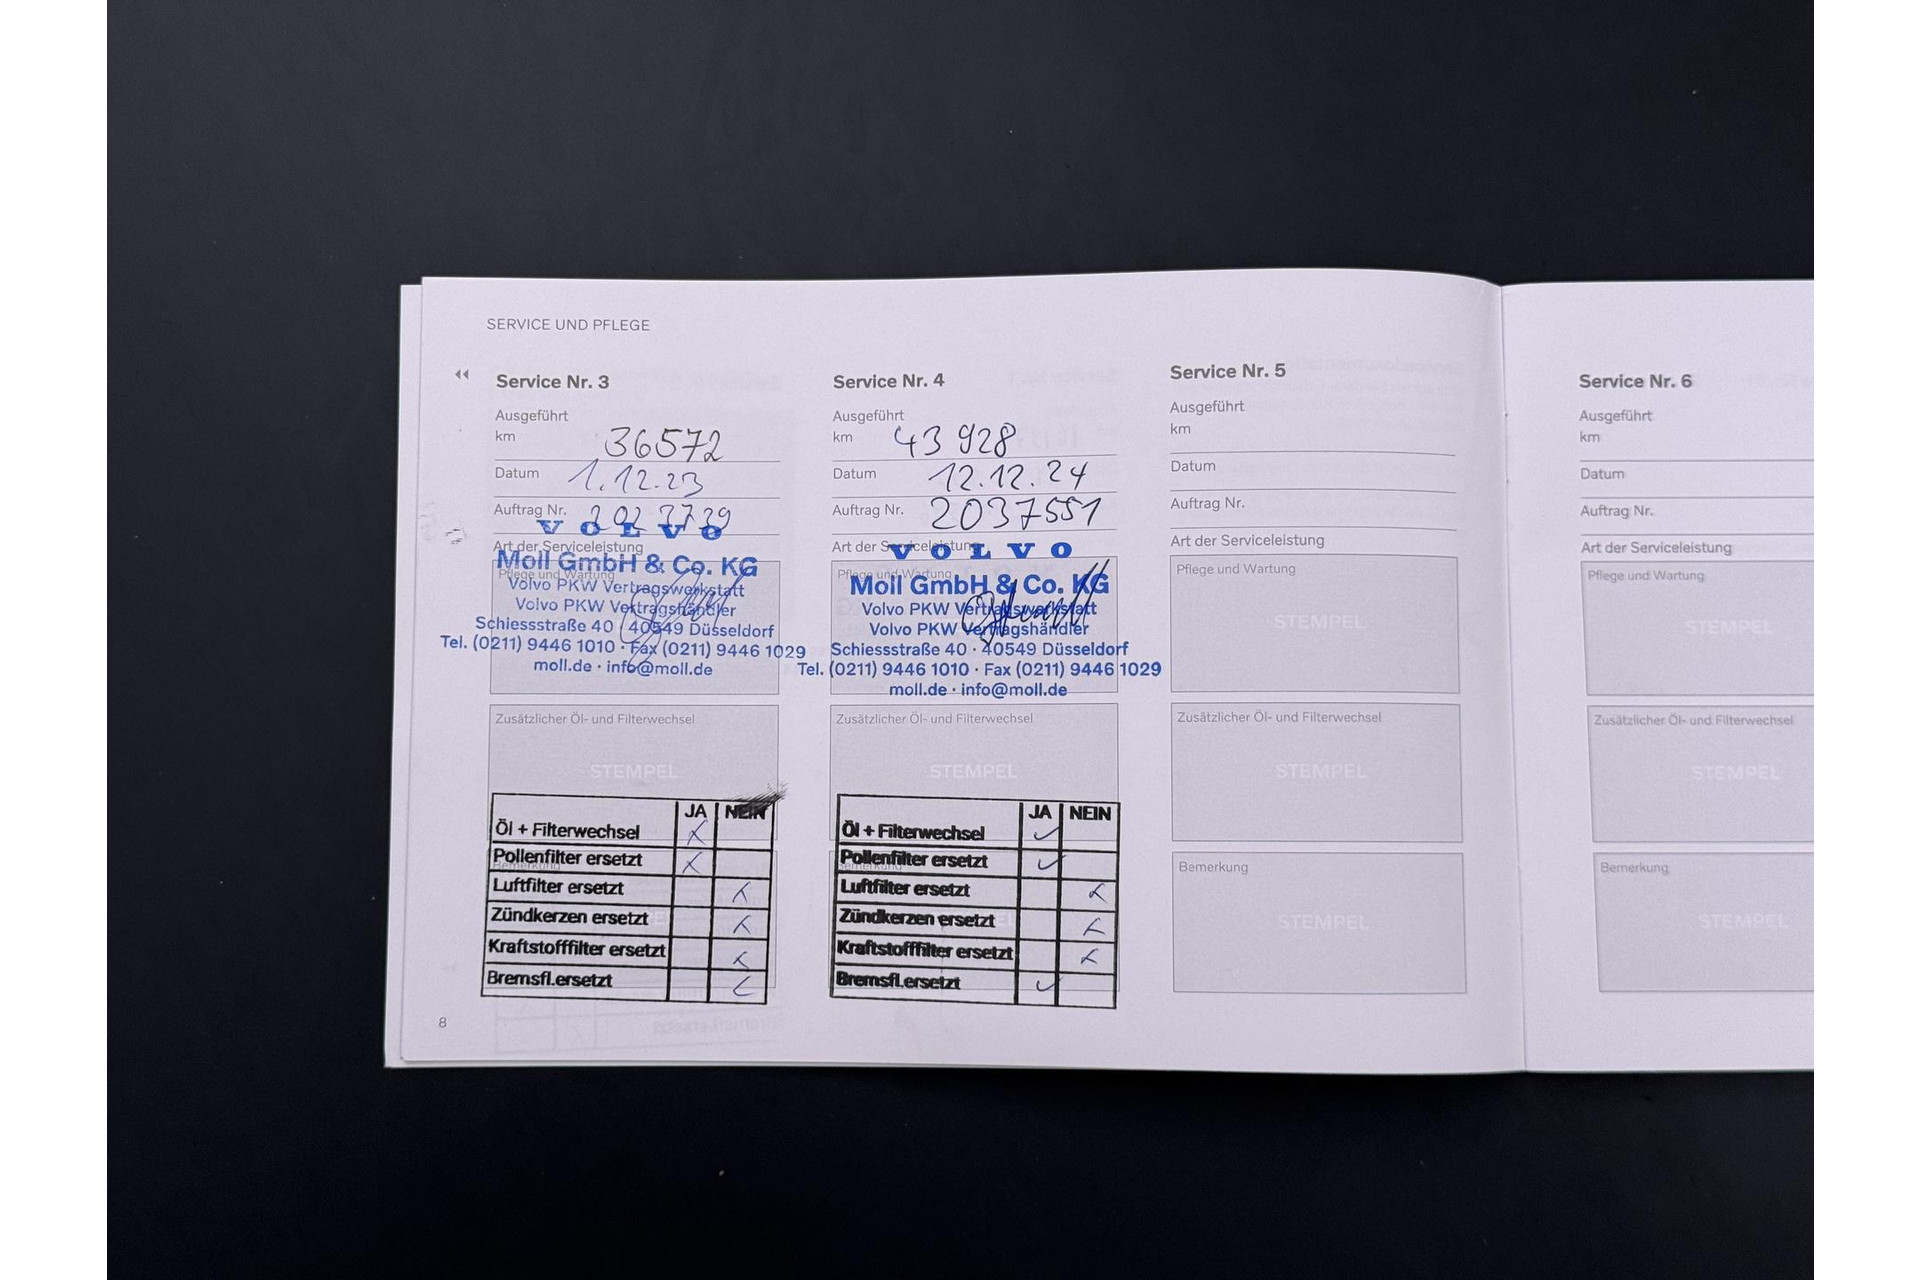 SERVICE UND PFLEGE
Service Nr. 3
Ausgeführt
km 36572
Datum 1.12.23
Auftrag Nr. 2023739
Art der Serviceleistung
Pflege und Wartung
VOLVO
Moll GmbH & Co. KG
Volvo PKW Vertragswerkstatt
Volvo PKW Vertragshändler
Schiessstraße 40 · 40549 Düsseldorf
Tel. (0211) 9446 1010 · Fax (0211) 9446 1029
moll.de · info@moll.de
Zusätzlicher Öl- und Filterwechsel
STEMPEL
JA NEIN
Öl + Filterwechsel X
Pollenfilter ersetzt X
Luftfilter ersetzt X
Zündkerzen ersetzt X
Kraftstofffilter ersetzt X
Bremsfl.ersetzt
8
Service Nr. 4
Ausgeführt
km 43 928
Datum 12.12.24
Auftrag Nr. 2037551
Art der Serviceleistung
Pflege und Wartung
VOLVO
Moll GmbH & Co. KG
Volvo PKW Vertragswerkstatt
Volvo PKW Vertragshändler
Schiessstraße 40 · 40549 Düsseldorf
Tel. (0211) 9446 1010 · Fax (0211) 9446 1029
moll.de · info@moll.de
Zusätzlicher Öl- und Filterwechsel
STEMPEL
JA NEIN
Öl + Filterwechsel ✓
Pollenfilter ersetzt ✓
Luftfilter ersetzt X
Zündkerzen ersetzt X
Kraftstofffilter ersetzt X
Bremsfl.ersetzt ✓
Service Nr. 5
Ausgeführt
km
Datum
Auftrag Nr.
Art der Serviceleistung
Pflege und Wartung
STEMPEL
Zusätzlicher Öl- und Filterwechsel
STEMPEL
Bemerkung
STEMPEL
Service Nr. 6
Ausgeführt
km
Datum
Auftrag Nr.
Art der Serviceleistung
Pflege und Wartung
STEMPEL
Zusätzlicher Öl- und Filterwechsel
STEMPEL
Bemerkung
STEMPEL